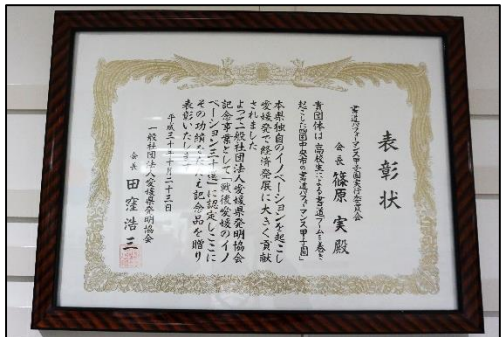 表彰状
書道パフォーマンス甲子園実行委員会
会長 篠原 実 殿
貴団体は高校生による書道ブームを巻き
起こした四国中央市の「書道パフォーマンス甲子園」
本県独自のイノベーションを起こし
愛媛発で経済発展に大きく貢献
されました
よって一般社団法人愛媛県発明協会
記念事業として「戦後愛媛のイノ
ベーション三十選」に認定しここに
その功績をたたえ記念品を贈り
表彰いたします
平成三十年十月二十三日
一般社団法人愛媛県発明協会
会長 田窪浩三